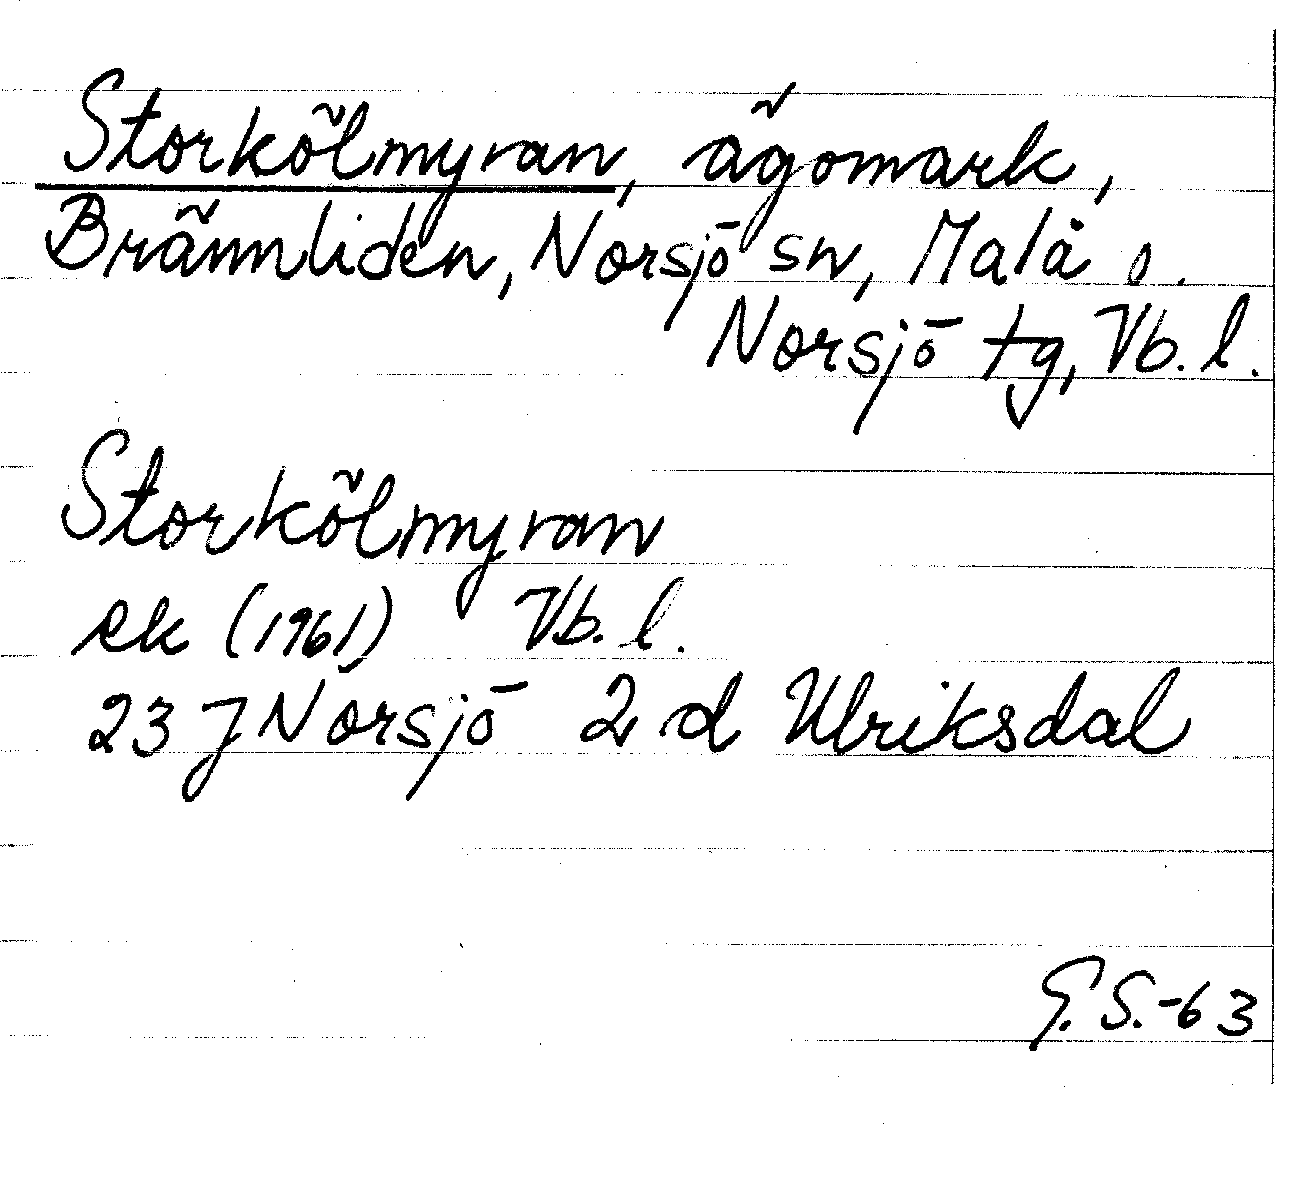 Storkölmyran, ägomark,
Brännliden, Norsjö sn, Malå o.
Norsjö tg, Vb. l.
Storkölmyran
ek (1961) Vb. l.
23 J Norsjö 2 d Ulriksdal
G. S. -63